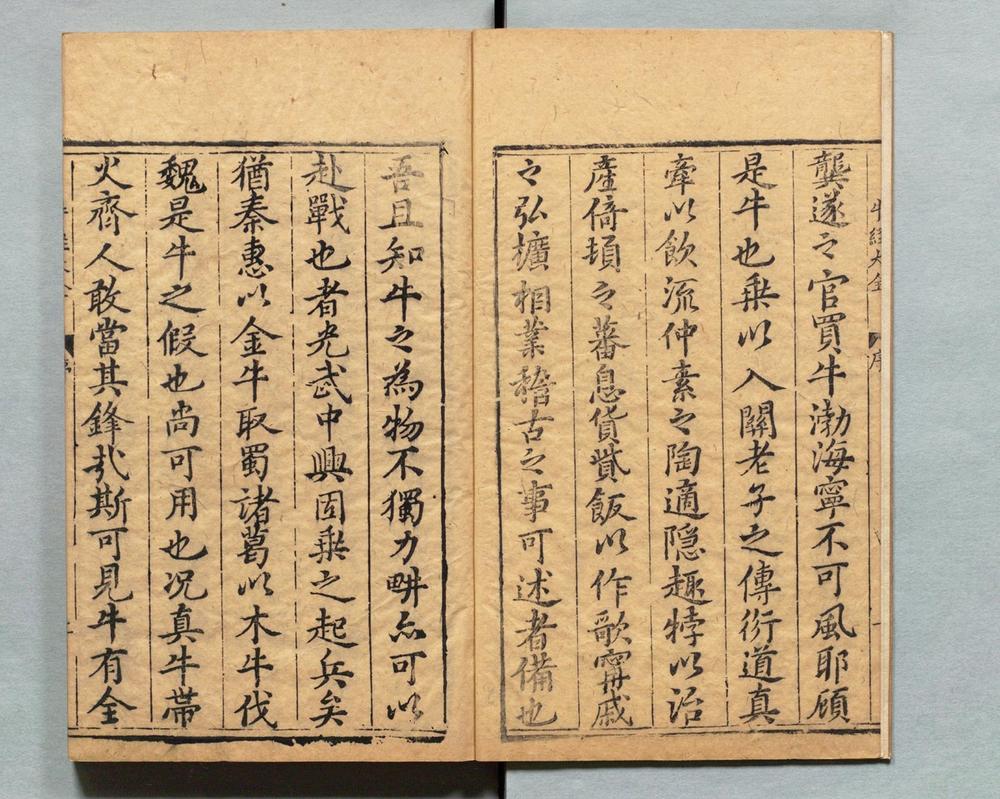 龔遂之官買牛渤海寧不可風耶顧
是牛也乗以入關老子之傳衍道真
牽以飲流仲素之陶適隠趣牸以治
産倚頓之蕃息貨貲飯以作歌寗戚
之弘擴相業稽古之事可述者備也
吾且知牛之為物不獨力畊亦可以
赴戰也者光武中興固乗之起兵矣
猶秦惠以金牛取蜀諸葛以木牛伐
魏是牛之假也尚可用也况真牛帯
火齊人敢當其鋒㢤斯可見牛有全